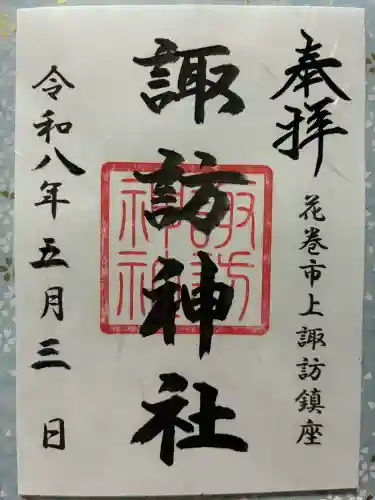 奉拝
花巻市上諏訪鎮座
諏訪神社
諏訪
神社
令和八年五月三日